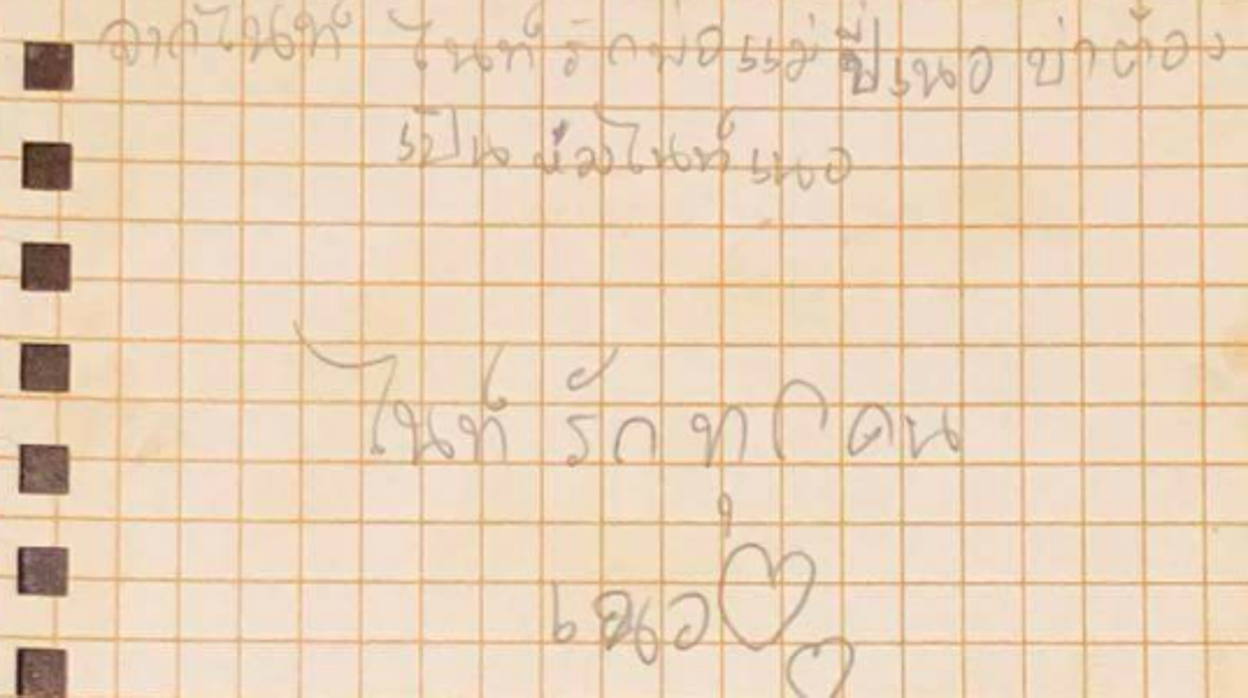 จากไนท์ ไนท์รักพ่อแม่ปี่เนอ บ่าต้อง
เป็นห่วงไนท์เนอ
ไนท์ รัก ทุก คน
เนอ